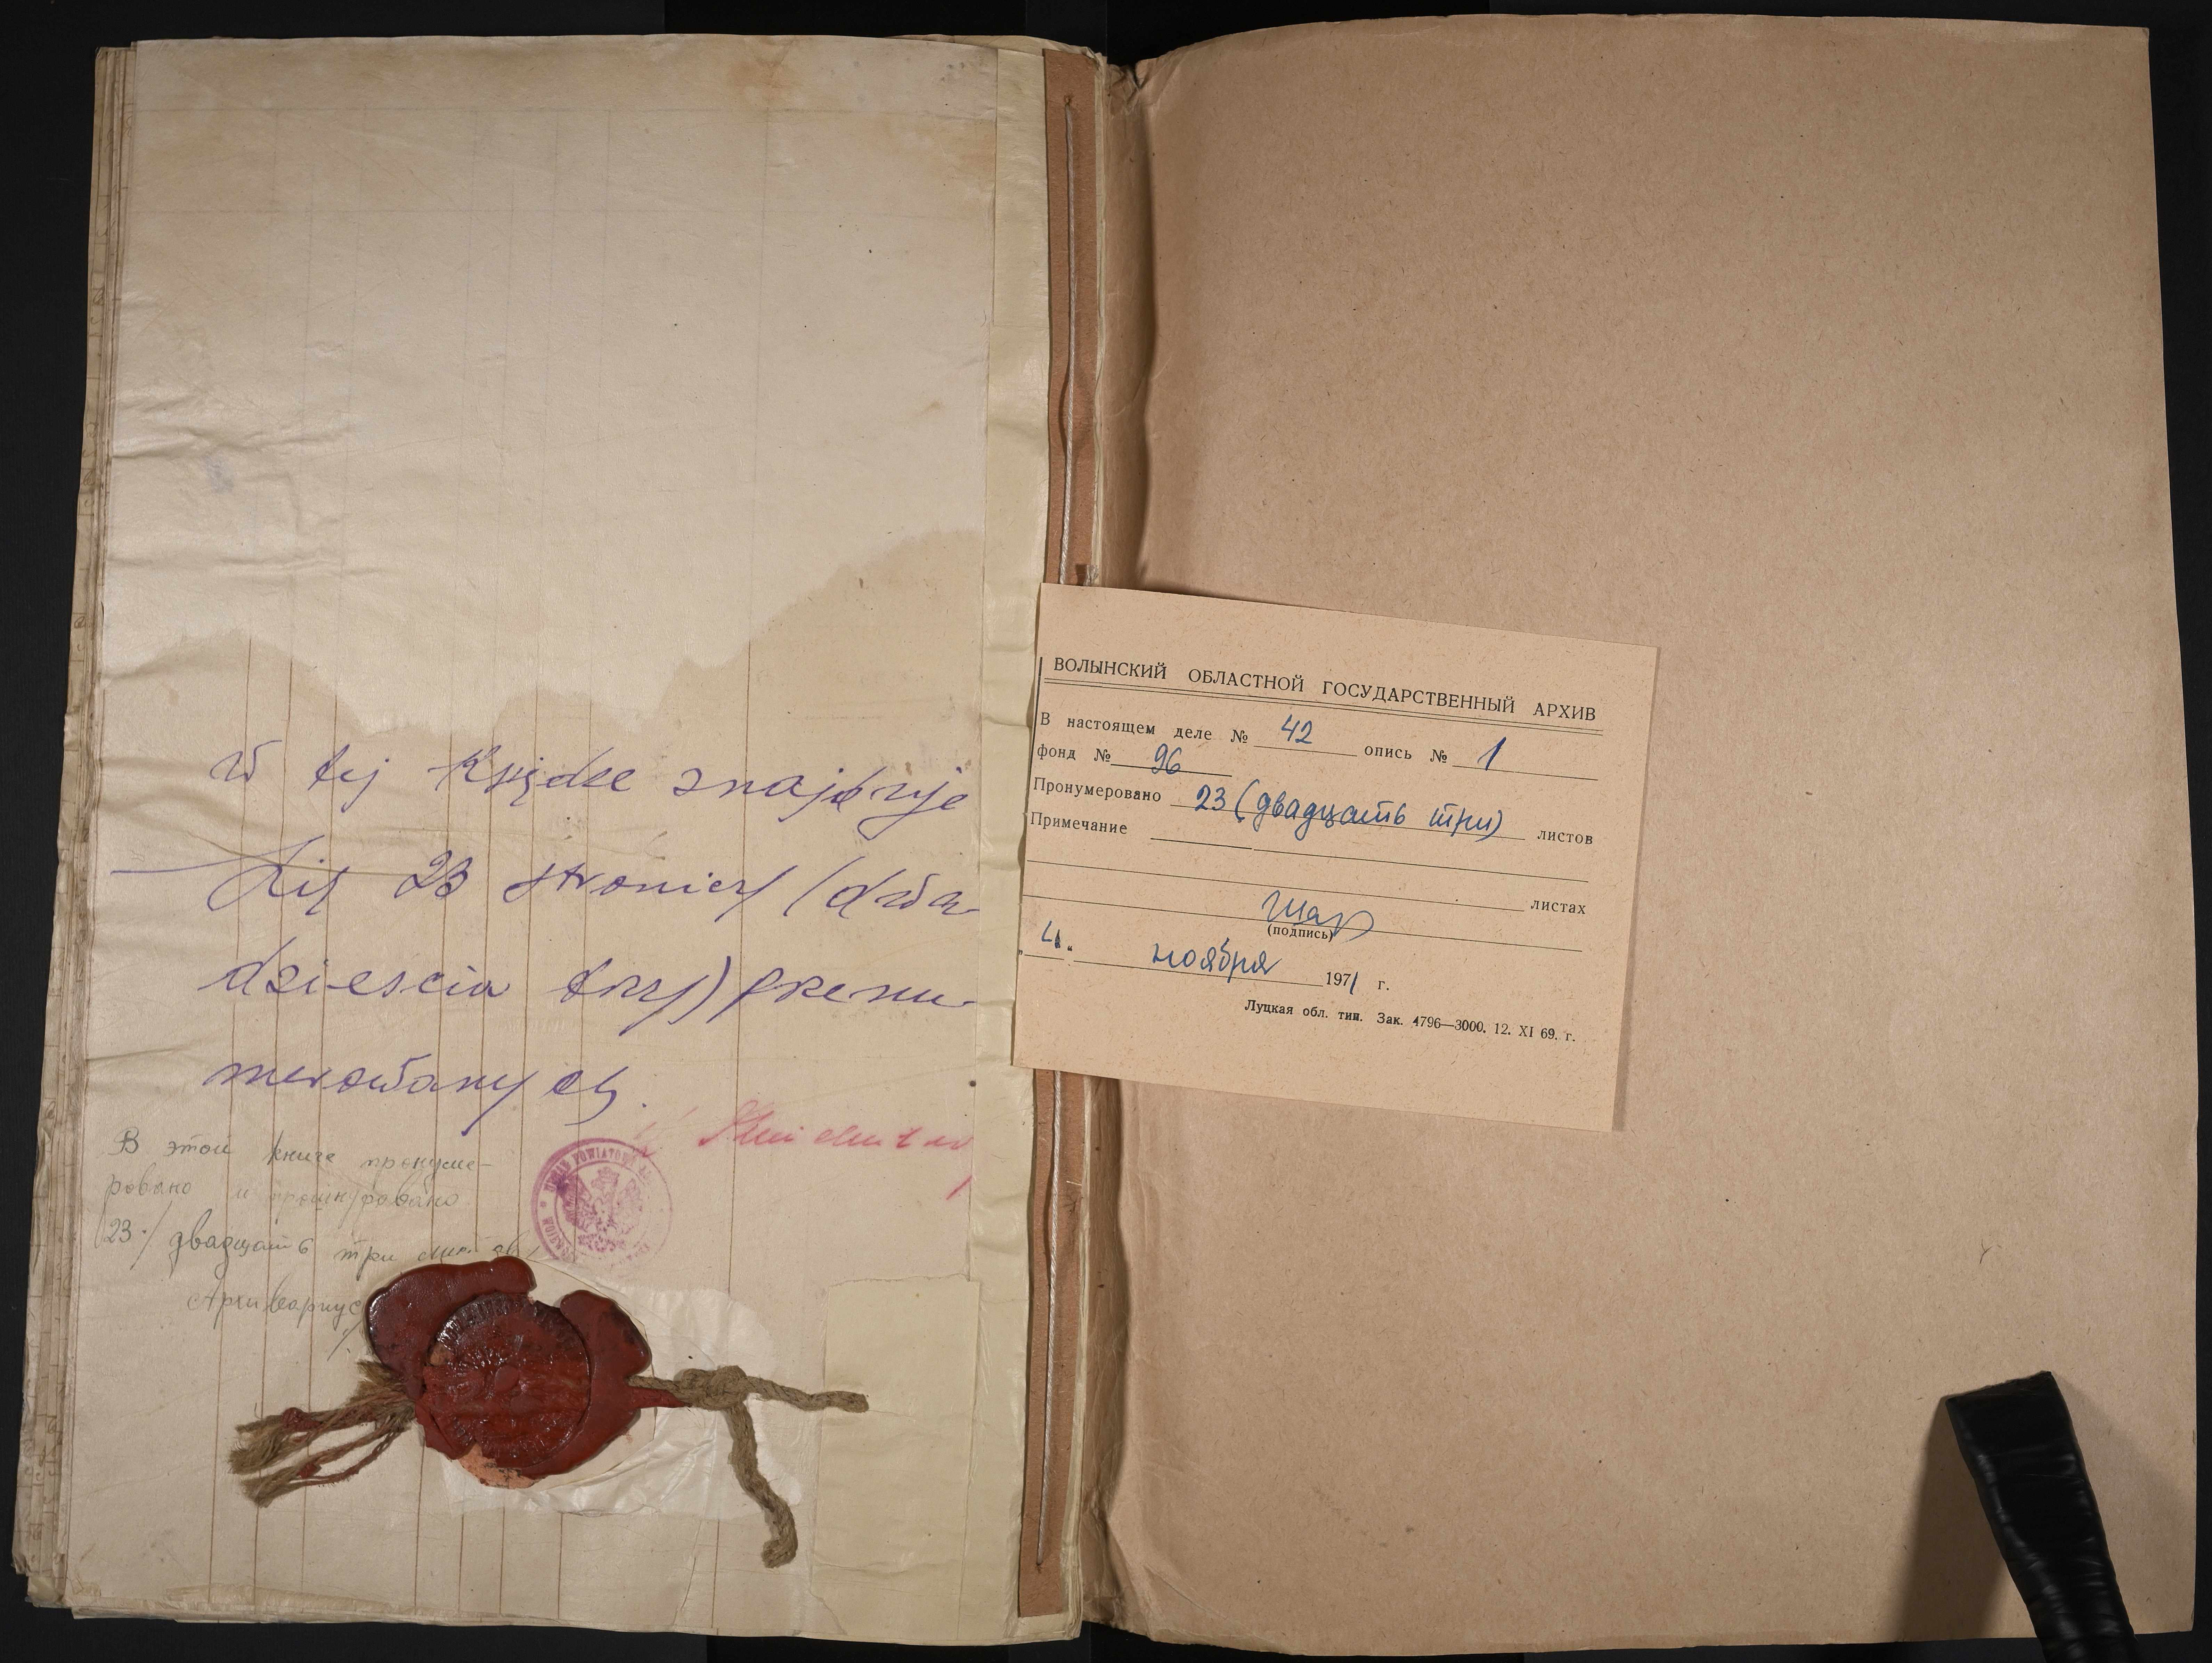 W tej Księdze znajduje
się 23 stronicy (dwa-
dzieścia trzy) przenu-
merowanych.
В этой книге пронуме-
ровано и прошнуровано
23 / двадцать три листов /
Архивариус
URZĄD POWIATOWY
ВОЛЫНСКИЙ ОБЛАСТНОЙ ГОСУДАРСТВЕННЫЙ АРХИВ
В настоящем деле № 42 опись № 1
фонд № 96
Пронумеровано 23 (двадцать три) листов
Примечание
листах
(подпись)
„4." ноября 1971 г.
Луцкая обл. тип. Зак. 4796—3000. 12. XI 69. г.